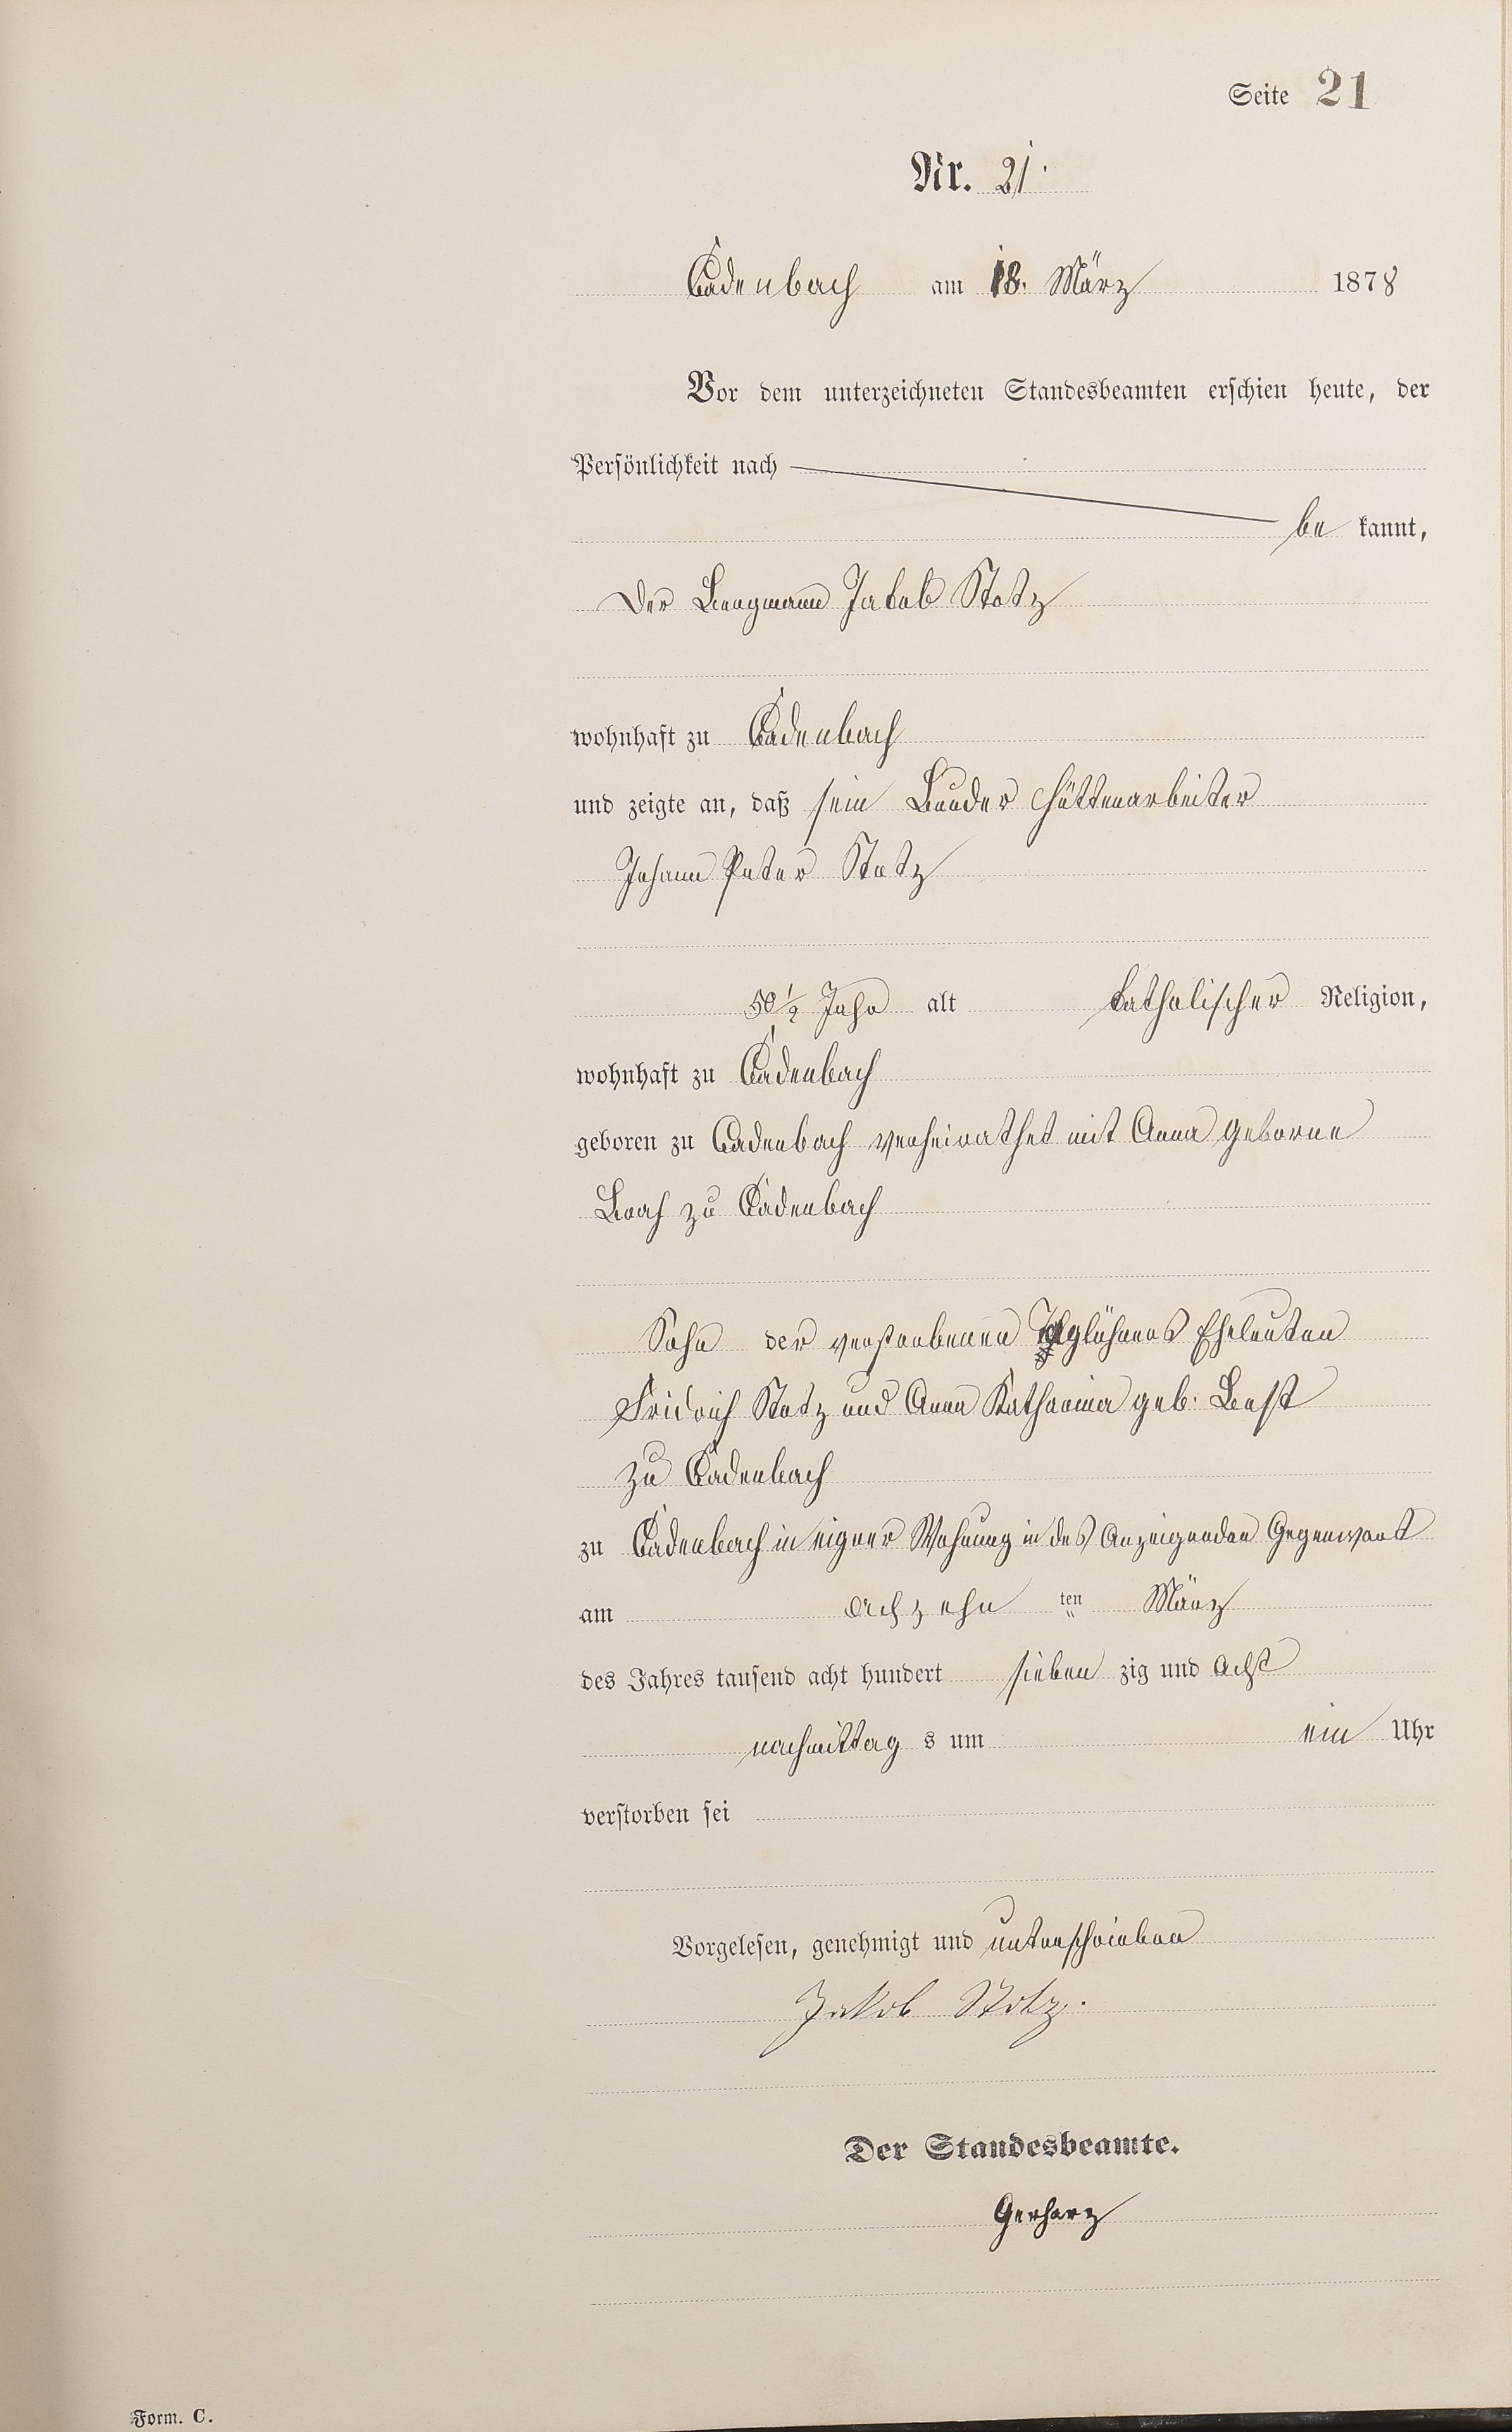 Seite 21
Nr. 21.
Cadenbach am 18. März 1878
Vor dem unterzeichneten Standesbeamten erschien heute, der
Persönlichkeit nach
be kannt,
Der Bergmann Jakob Stotz
wohnhaft zu Cadenbach
und zeigte an, daß sein Bruder Hüttenarbeiter
Johann Peter Stotz
50 1/2 Jahr alt katholischer Religion,
wohnhaft zu Cadenbach
geboren zu Cadenbach verheirathet mit Anna geborne
zu Cadenbach
Sohn der verstorbenen Taglöhners Eheleuten
Fridrich Stotz und Anna Katharina geb. Best
zu Cadenbach
zu Cadenbach in eigner Wohnung in des Anzeigenden Gegenwart
am achzehn ten März
des Jahres tausend acht hundert sieben zig und acht
nachmittag s um ein Uhr
verstorben sei
Vorgelesen, genehmigt und unterschrieben
Jakob Stotz.
Der Standesbeamte.
Gerharz
Form. C.